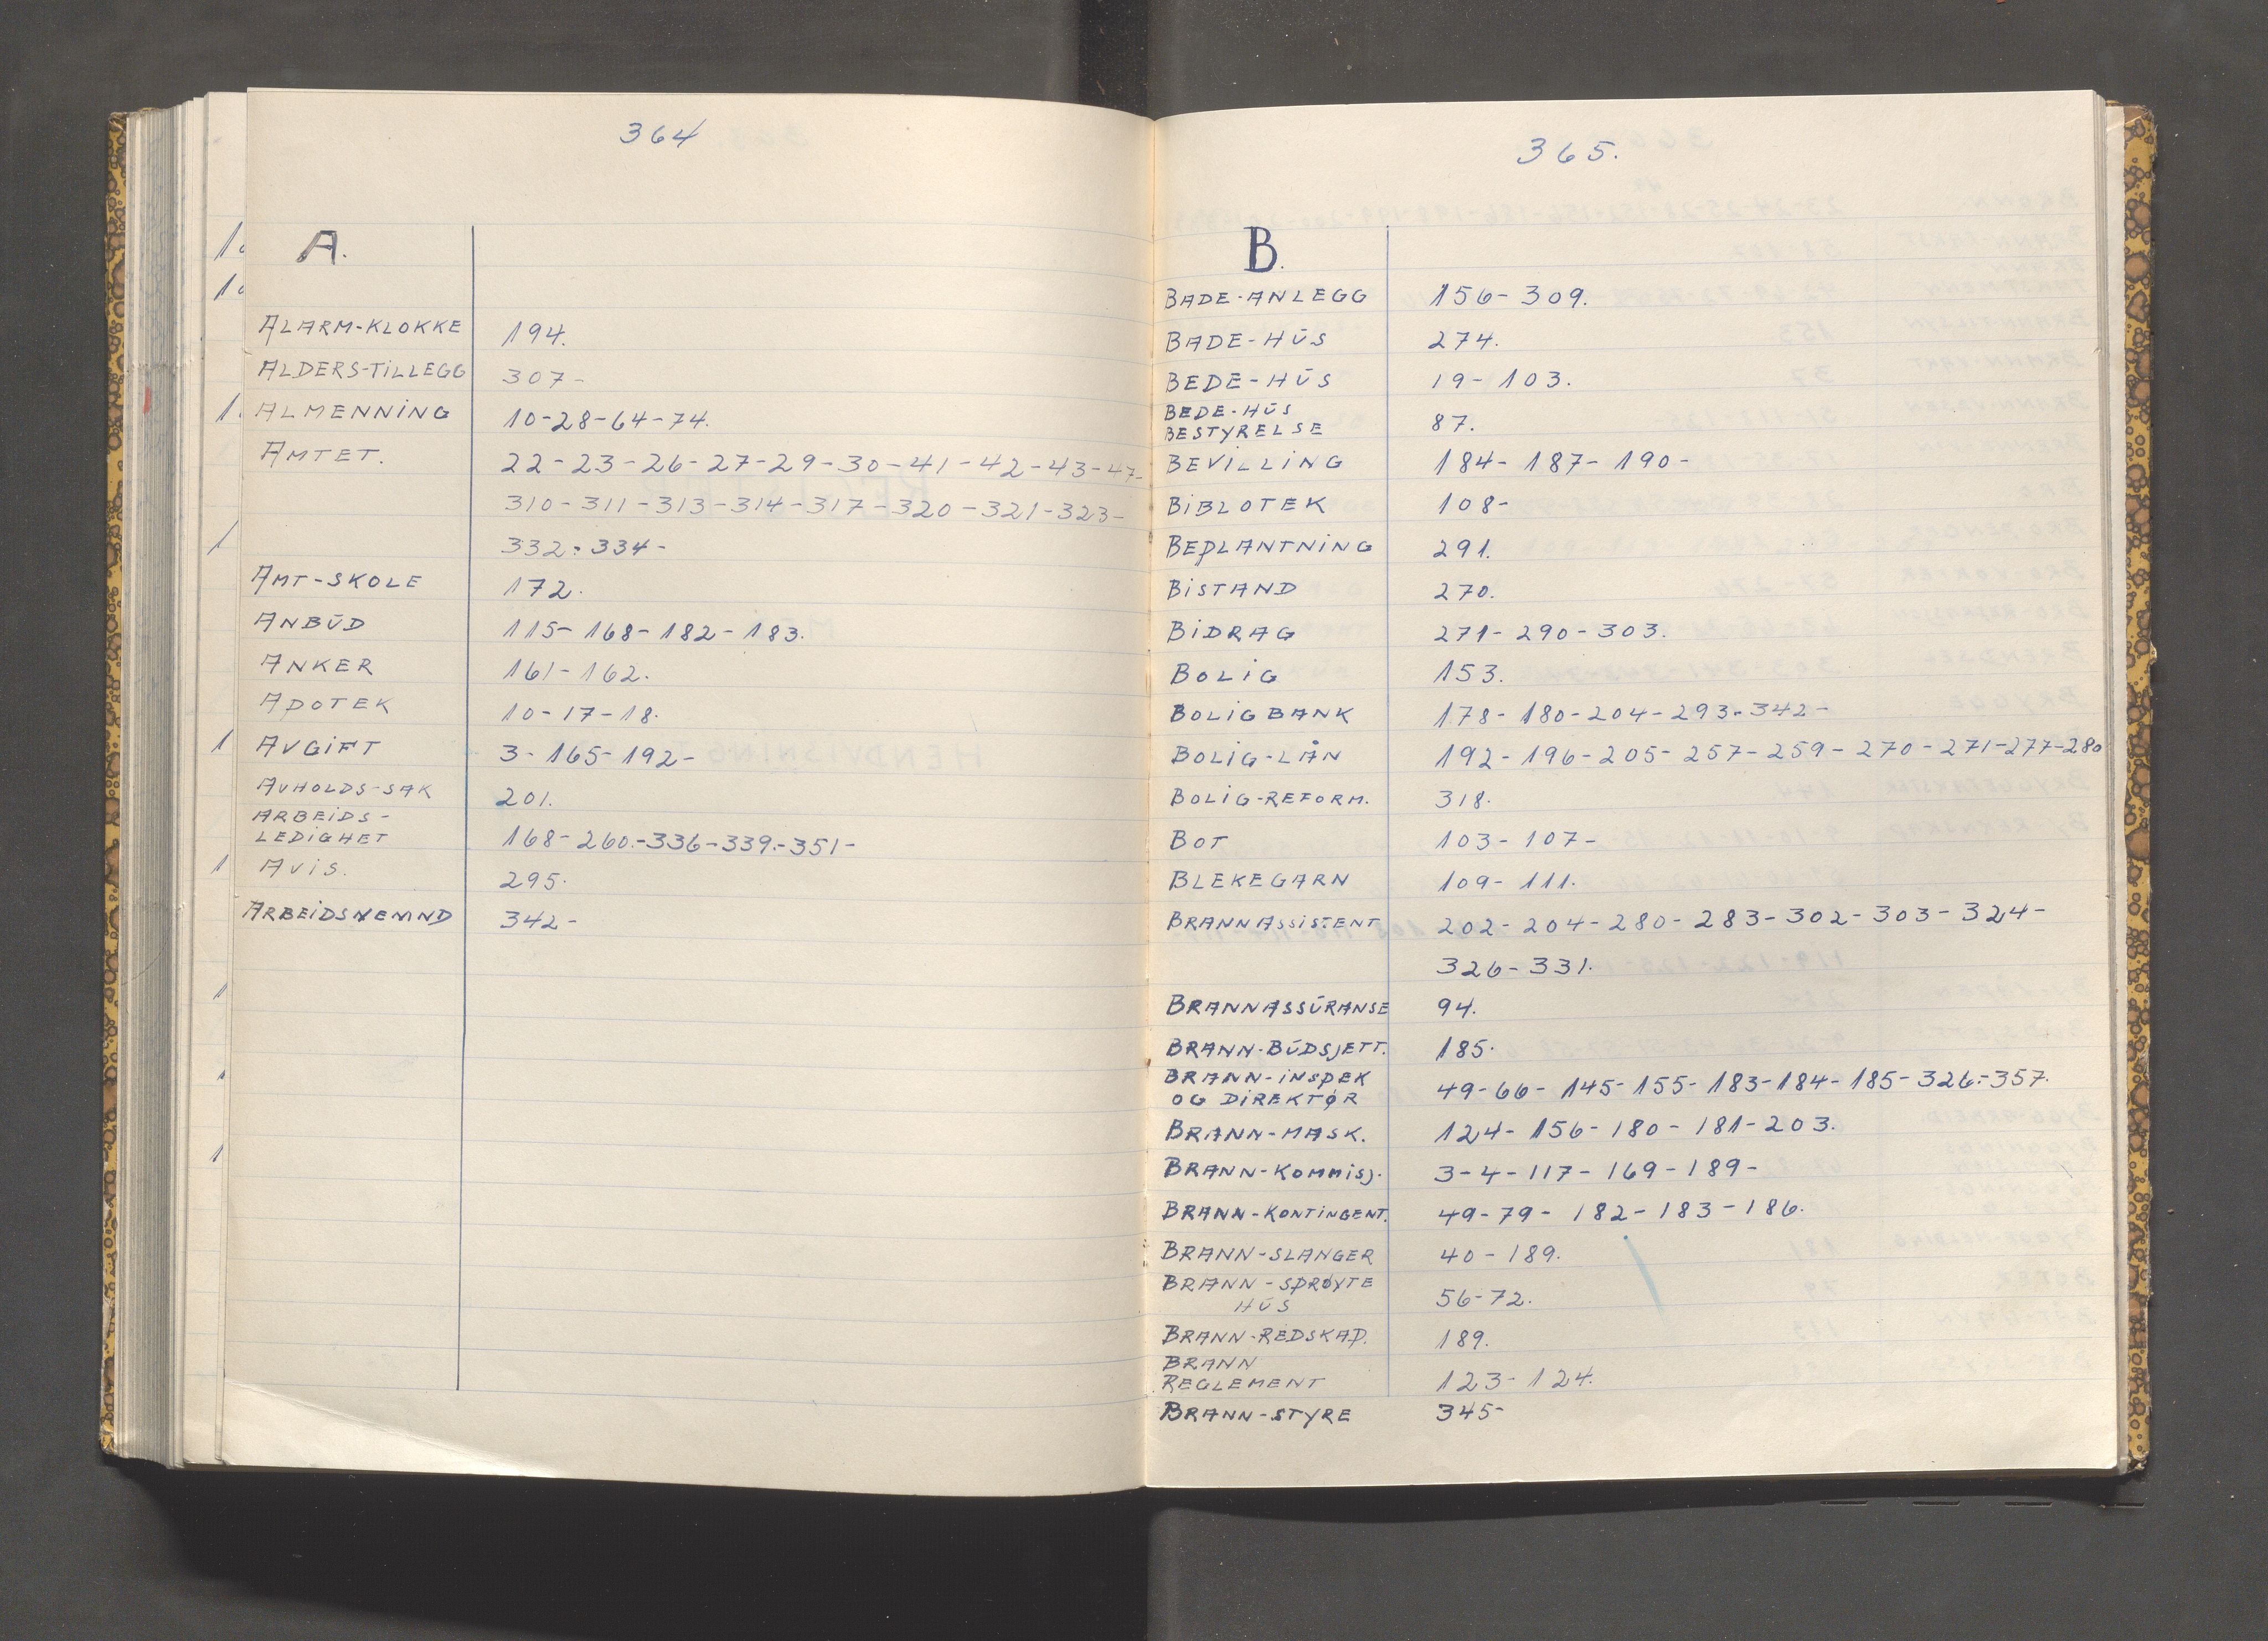 364
A.
ALARM-KLOKKE 194.
ALDERS-TILLEGG 307-
ALMENNING 10-28-64-74.
AMTET. 22-23-26-27-29-30-41-42-43-47-
310-311-313-314-317-320-321-323-
332-334-
AMT-SKOLE 172.
ANBŪD 115-168-182-183.
ANKER 161-162.
APOTEK 10-17-18.
AVGIFT 3-165-192-
AVHOLDS-SAK 201.
ARBEIDS-
LEDIGHET 168-260.-336-339.-351-
AVIS. 295.
ARBEIDSNEMND 342-
365.
B.
BADE-ANLEGG 156-309.
BADE-HŪS 274.
BEDE-HŪS 19-103.
BEDE-HŪS
BESTYRELSE 87.
BEVILLING 184-187-190-
BIBLOTEK 108-
BEPLANTNING 291.
BISTAND 270.
BIDRAG 271-290-303.
BOLIG 153.
BOLIGBANK 178-180-204-293-342-
BOLIG-LÅN 192-196-205-257-259-270-271-277-280
BOLIG-REFORM. 318.
BOT 103-107-
BLEKEGARN 109-111.
BRANNASSISTENT 202-204-280-283-302-303-324-
326-331.
BRANNASSŪRANSE 94.
BRANN-BŪDSJETT. 185.
BRANN-INSPEK
OG DIREKTØR 49-66-145-155-183-184-185-326.-357.
BRANN-MASK. 124-156-180-181-203.
BRANN-KOMMISJ. 3-4-117-169-189-
BRANN-KONTINGENT. 49-79-182-183-186.
BRANN-SLANGER 40-189.
BRANN-SPRØYTE
HŪS 56-72.
BRANN-REDSKAP. 189.
BRANN
REGLEMENT 123-124.
BRANN-STYRE 345-